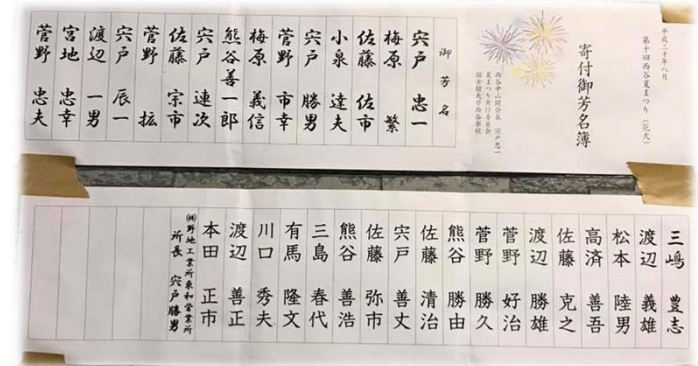 平成三十年八月
第十回西谷夏まつり（花火）
寄付御芳名簿
西谷中山間会長 宍戸忠一
夏まつり実行委員会
国士舘大学西谷麻校
御芳名
宍戸 忠一
梅原 繁
佐藤 佐市
小泉 達夫
宍戸 勝男
菅野 市幸
梅原 義信
熊谷 善一郎
宍戸 連次
佐藤 宗市
菅野 拡
宍戸 辰一
渡辺 一男
宮地 忠幸
菅野 忠夫
三嶋 豊志
渡辺 義雄
松本 陸男
高済 善吾
佐藤 克之
渡辺 勝雄
菅野 好治
菅野 勝久
熊谷 勝由
佐藤 清治
宍戸 善丈
佐藤 弥市
熊谷 善浩
三島 春代
有馬 隆文
川口 秀夫
渡辺 善正
本田 正市
㈱野地工業所東和営業所
所長 宍戸勝男